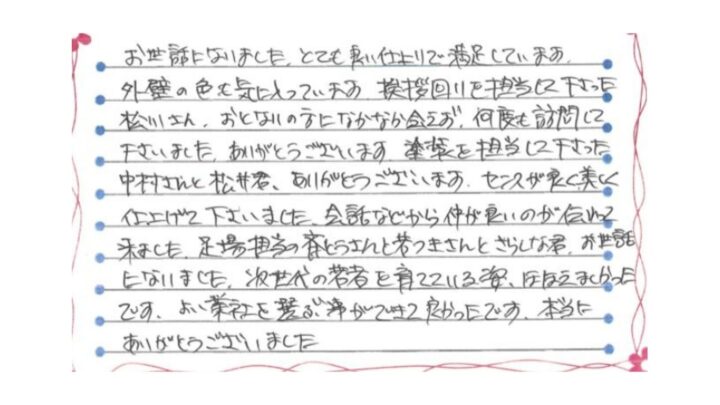 お世話になりました。とても良い仕上りで満足しています。
外壁の色も気に入っています。挨拶回りを担当して下さった
松川さん、おとないの方になかなか会えず、何度も訪問して
下さいました。ありがとうございます。塗装を担当して下さった
中村さんと松井君、ありがとうございます。センスが良く美しく
仕上げて下さいました。会話などから仲が良いのが伝わって
来ました。足場担当の斉とうさんと若つきさんとさらしな君、お世話
になりました。次世代の若者を育てている姿、ほほえましかった
です。よい業社を選ぶ事ができて良かったです。本当に
ありがとうございました